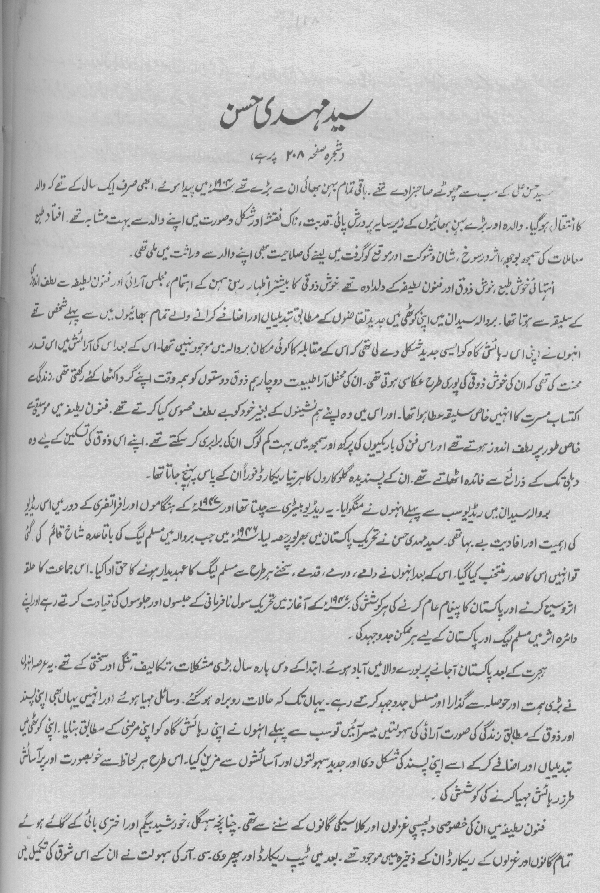 سید مہدی حسن
(شجرہ صفحہ ۲۰۸ پر ہے)
سید حسن علی کے سب سے چھوٹے صاحبزادے تھے۔ باقی تمام بہن بھائی ان سے بڑے تھے میں پیدا ہوئے۔ ابھی صرف ایک سال کے تھے کہ والد
کا انتقال ہو گیا۔ والدہ اور بڑے بہن بھائیوں کے زیر سایہ پرورش پائی۔ قد بت، ناک نقشہ اور شکل و صورت میں اپنے والد سے بہت مشابہ تھے۔ افتاد طبع
معاملات کی سمجھ بوجھ، اثر و رسوخ، شان و شوکت اور موقع کو گرفت میں لینے کی صلاحیت بھی اپنے والد سے وراثت میں ملی تھی۔
انتہائی خوش طبع، خوش ذوق اور فنون لطیفہ کے دلدادہ تھے۔ خوش ذوقی کا بیشتر اظہار رہن سہن کے اہتمام، مجلس آرائی اور فنون لطیفہ سے لطف اندوزی
کے سلیقہ سے ہوتا تھا۔ بروالہ سیداں میں اپنی کوٹھی میں جدید تقاضوں کے مطابق تبدیلیاں اور اضافے کرانے والے تمام بھائیوں میں سے پہلے شخص تھے
انہوں نے اپنی اس رہائش گاہ کو ایسی جدید شکل دے لی تھی کہ اس کے مقابلہ کا کوئی مکان بروالہ میں موجود نہیں تھا۔ اس کے بعد اس کی آرائش میں اس قدر
محنت کی تھی کہ ان کی خوش ذوقی کی پوری طرح عکاسی ہوتی تھی۔ ان کی محفل آرا طبیعت دوچار ہم ذوق دوستوں کو ہمہ وقت اپنے گرد اکٹھا رکھتی تھی، زندگی سے
اکتساب مسرت کا انہیں خاص سلیقہ عطا ہوا تھا۔ اور اس میں وہ اپنے ہم نشینوں کے بغیر خود کو بے لطف محسوس کیا کرتے تھے۔ فنون لطیفہ میں موسیقی سے
خاص طور پر لطف اندوز ہوتے تھے اور اس فن کی باریکیوں کی پرکھ اور سمجھ میں بہت کم لوگ ان کی برابری کر سکتے تھے۔ اپنے اس ذوق کی تسکین کے لیے وہ
دہلی تک کے ذرائع سے فائدہ اٹھاتے تھے۔ ان کے پسندیدہ گلوکاروں کا ہر نیا ریکارڈ فوراً ان کے پاس پہنچ جاتا تھا۔
بروالہ سیداں میں ریڈیو سب سے پہلے انہوں نے منگوایا۔ یہ ریڈیو بیٹری سے چلتا تھا اور ۱۹۴۷ء کے ہنگاموں اور افراتفری کے دور میں اس ریڈیو
کی اہمیت اور افادیت بے بہا تھی۔ سید مہدی حسن نے تحریک پاکستان میں بھرپور حصہ لیا۔ ۱۹۴۶ء میں جب بروالہ میں مسلم لیگ کی باقاعدہ شاخ قائم کی گئی
تو انہیں اس کا صدر منتخب کیا گیا۔ اس کے بعد انہوں نے دامے، درمے، قدمے، سخنے ہر طرح سے مسلم لیگ کا عہدیدار ہونے کا حق ادا کیا۔ اس جماعت کا حلقہ
اثر وسیع کرنے اور پاکستان کا پیغام عام کرنے کی ہر کوشش کی۔ ۱۹۴۷ء کے آغاز میں تحریک سول نافرمانی کے جلسوں اور جلوسوں کی قیادت کرتے رہے اور اپنے
دائرہ اثر میں مسلم لیگ اور پاکستان کے لیے ہر ممکن جدوجہد کی۔
ہجرت کے بعد پاکستان آجانے پر بورے والا میں آباد ہوئے۔ ابتدا کے دس بارہ سال بڑی مشکلات، تکالیف، تنگی اور سختی کے تھے۔ یہ عرصہ انہوں
نے بڑی ہمت اور حوصلہ سے گذارا اور مسلسل جدوجہد کرتے رہے۔ یہاں تک کہ حالات روبراہ ہو گئے۔ وسائل مہیا ہوئے اور انہیں یہاں بھی اپنی پسند
اور ذوق کے مطابق زندگی کی صورت آرائی کی سہولتیں میسر آئیں تو سب سے پہلے انہوں نے اپنی رہائش گاہ کو اپنی مرضی کے مطابق بنایا۔ اپنی کوٹھی میں
تبدیلیاں اور اضافے کر کے اسے اپنی پسند کی شکل دی اور جدید سہولتوں اور آسائشوں سے مزین کیا۔ اس طرح ہر لحاظ سے خوبصورت اور پر آسائش
طرز رہائش مہیا کرنے کی کوشش کی۔
فنون لطیفہ میں ان کی خصوصی دلچسپی غزلوں اور کلاسیکی گانوں کے سننے سے تھی۔ چنانچہ سہگل، خورشید بیگم اور اختری بائی کے گائے ہوئے
تمام گانوں اور غزلوں کے ریکارڈ ان کے ذخیرہ میں موجود تھے۔ بعد میں ٹیپ ریکارڈ اور پھر وی۔ سی۔ آر کی سہولت نے ان کے اس شوق کی تکمیل میں